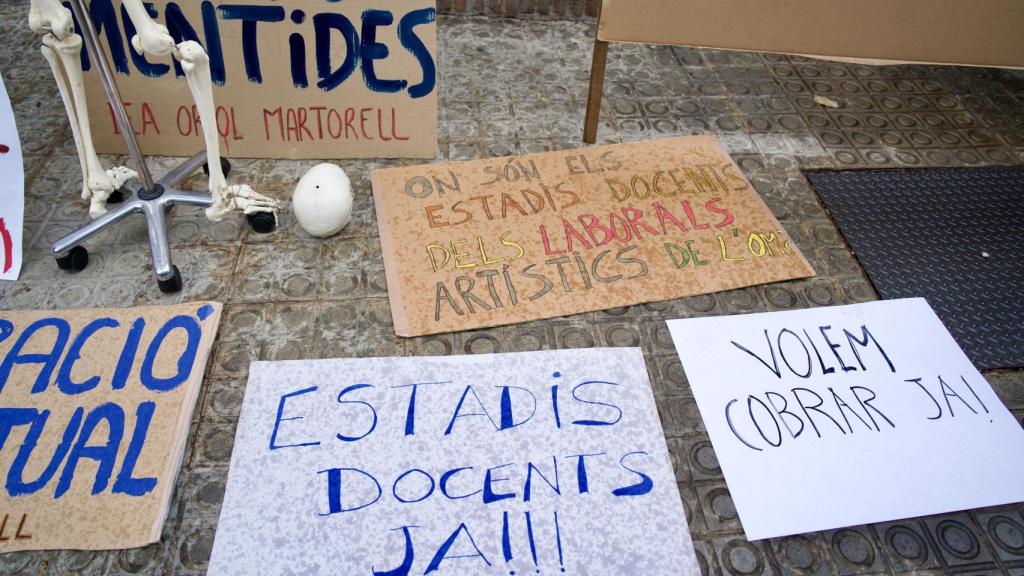 MENTIDES
IEA ORIOL MARTORELL
ON SÓN ELS
ESTADIS DOCENTS
DELS LABORALS
ARTÍSTICS DE L'OM
ESTADIS
DOCENTS
JA!!!
VOLEM
COBRAR JA!